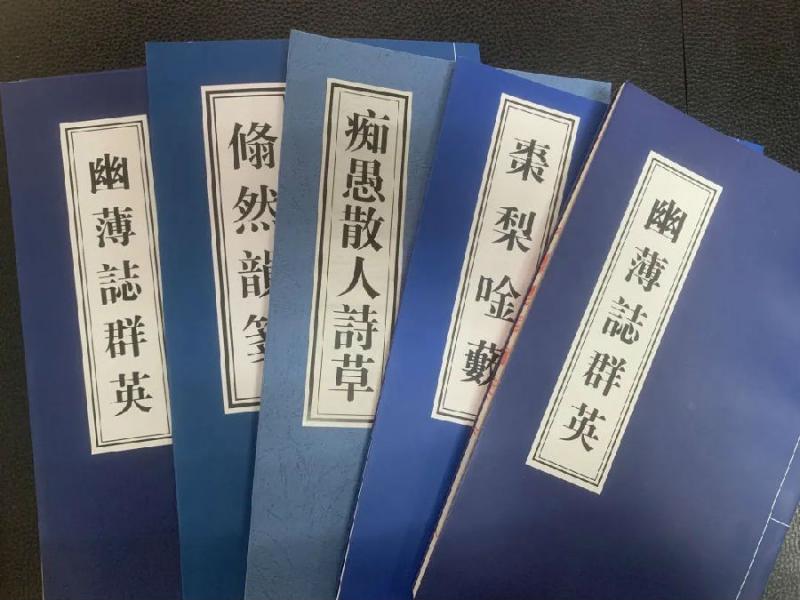 幽薄誌群英
翛然韻箋
痴愚散人詩草
棗梨唫藪
幽薄誌群英